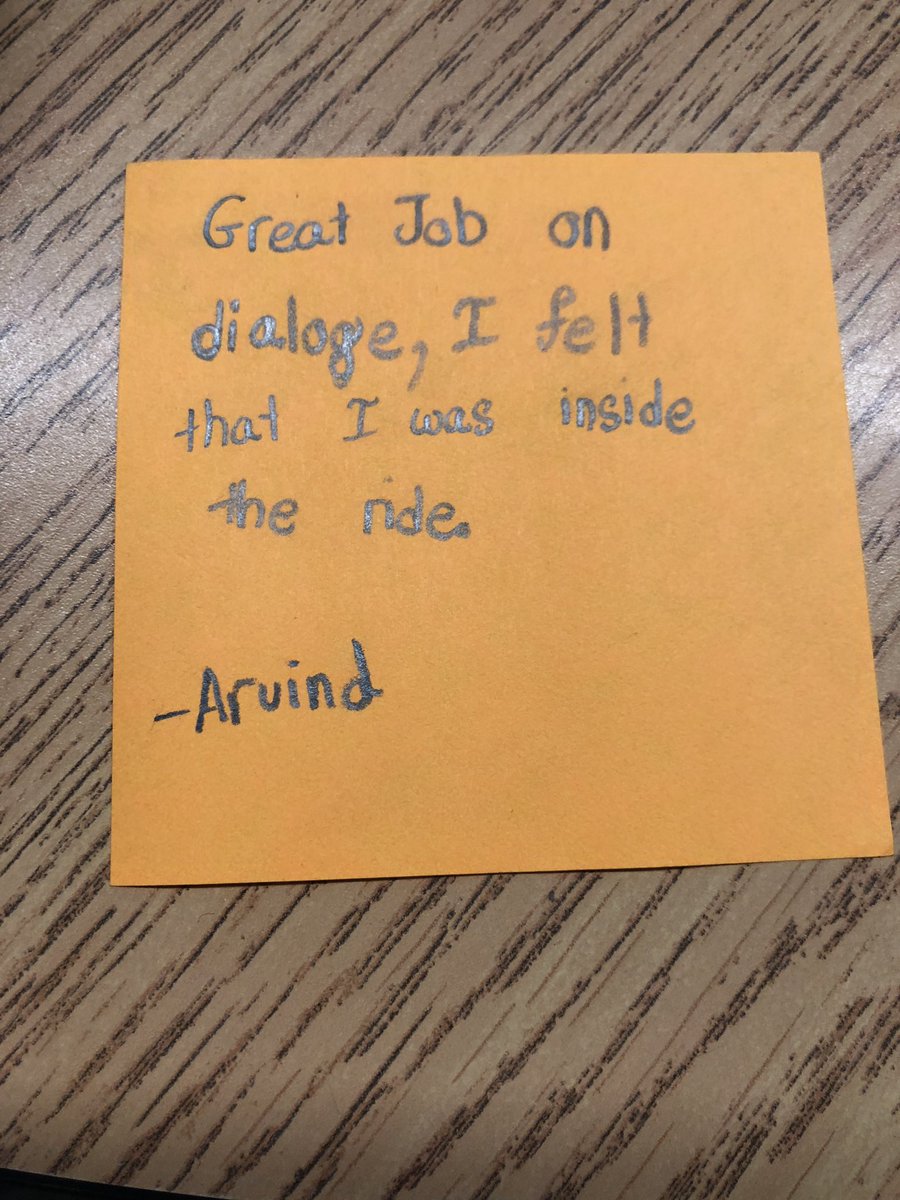 Great Job on
dialoge, I felt
that I was inside
the ride.
-Arvind